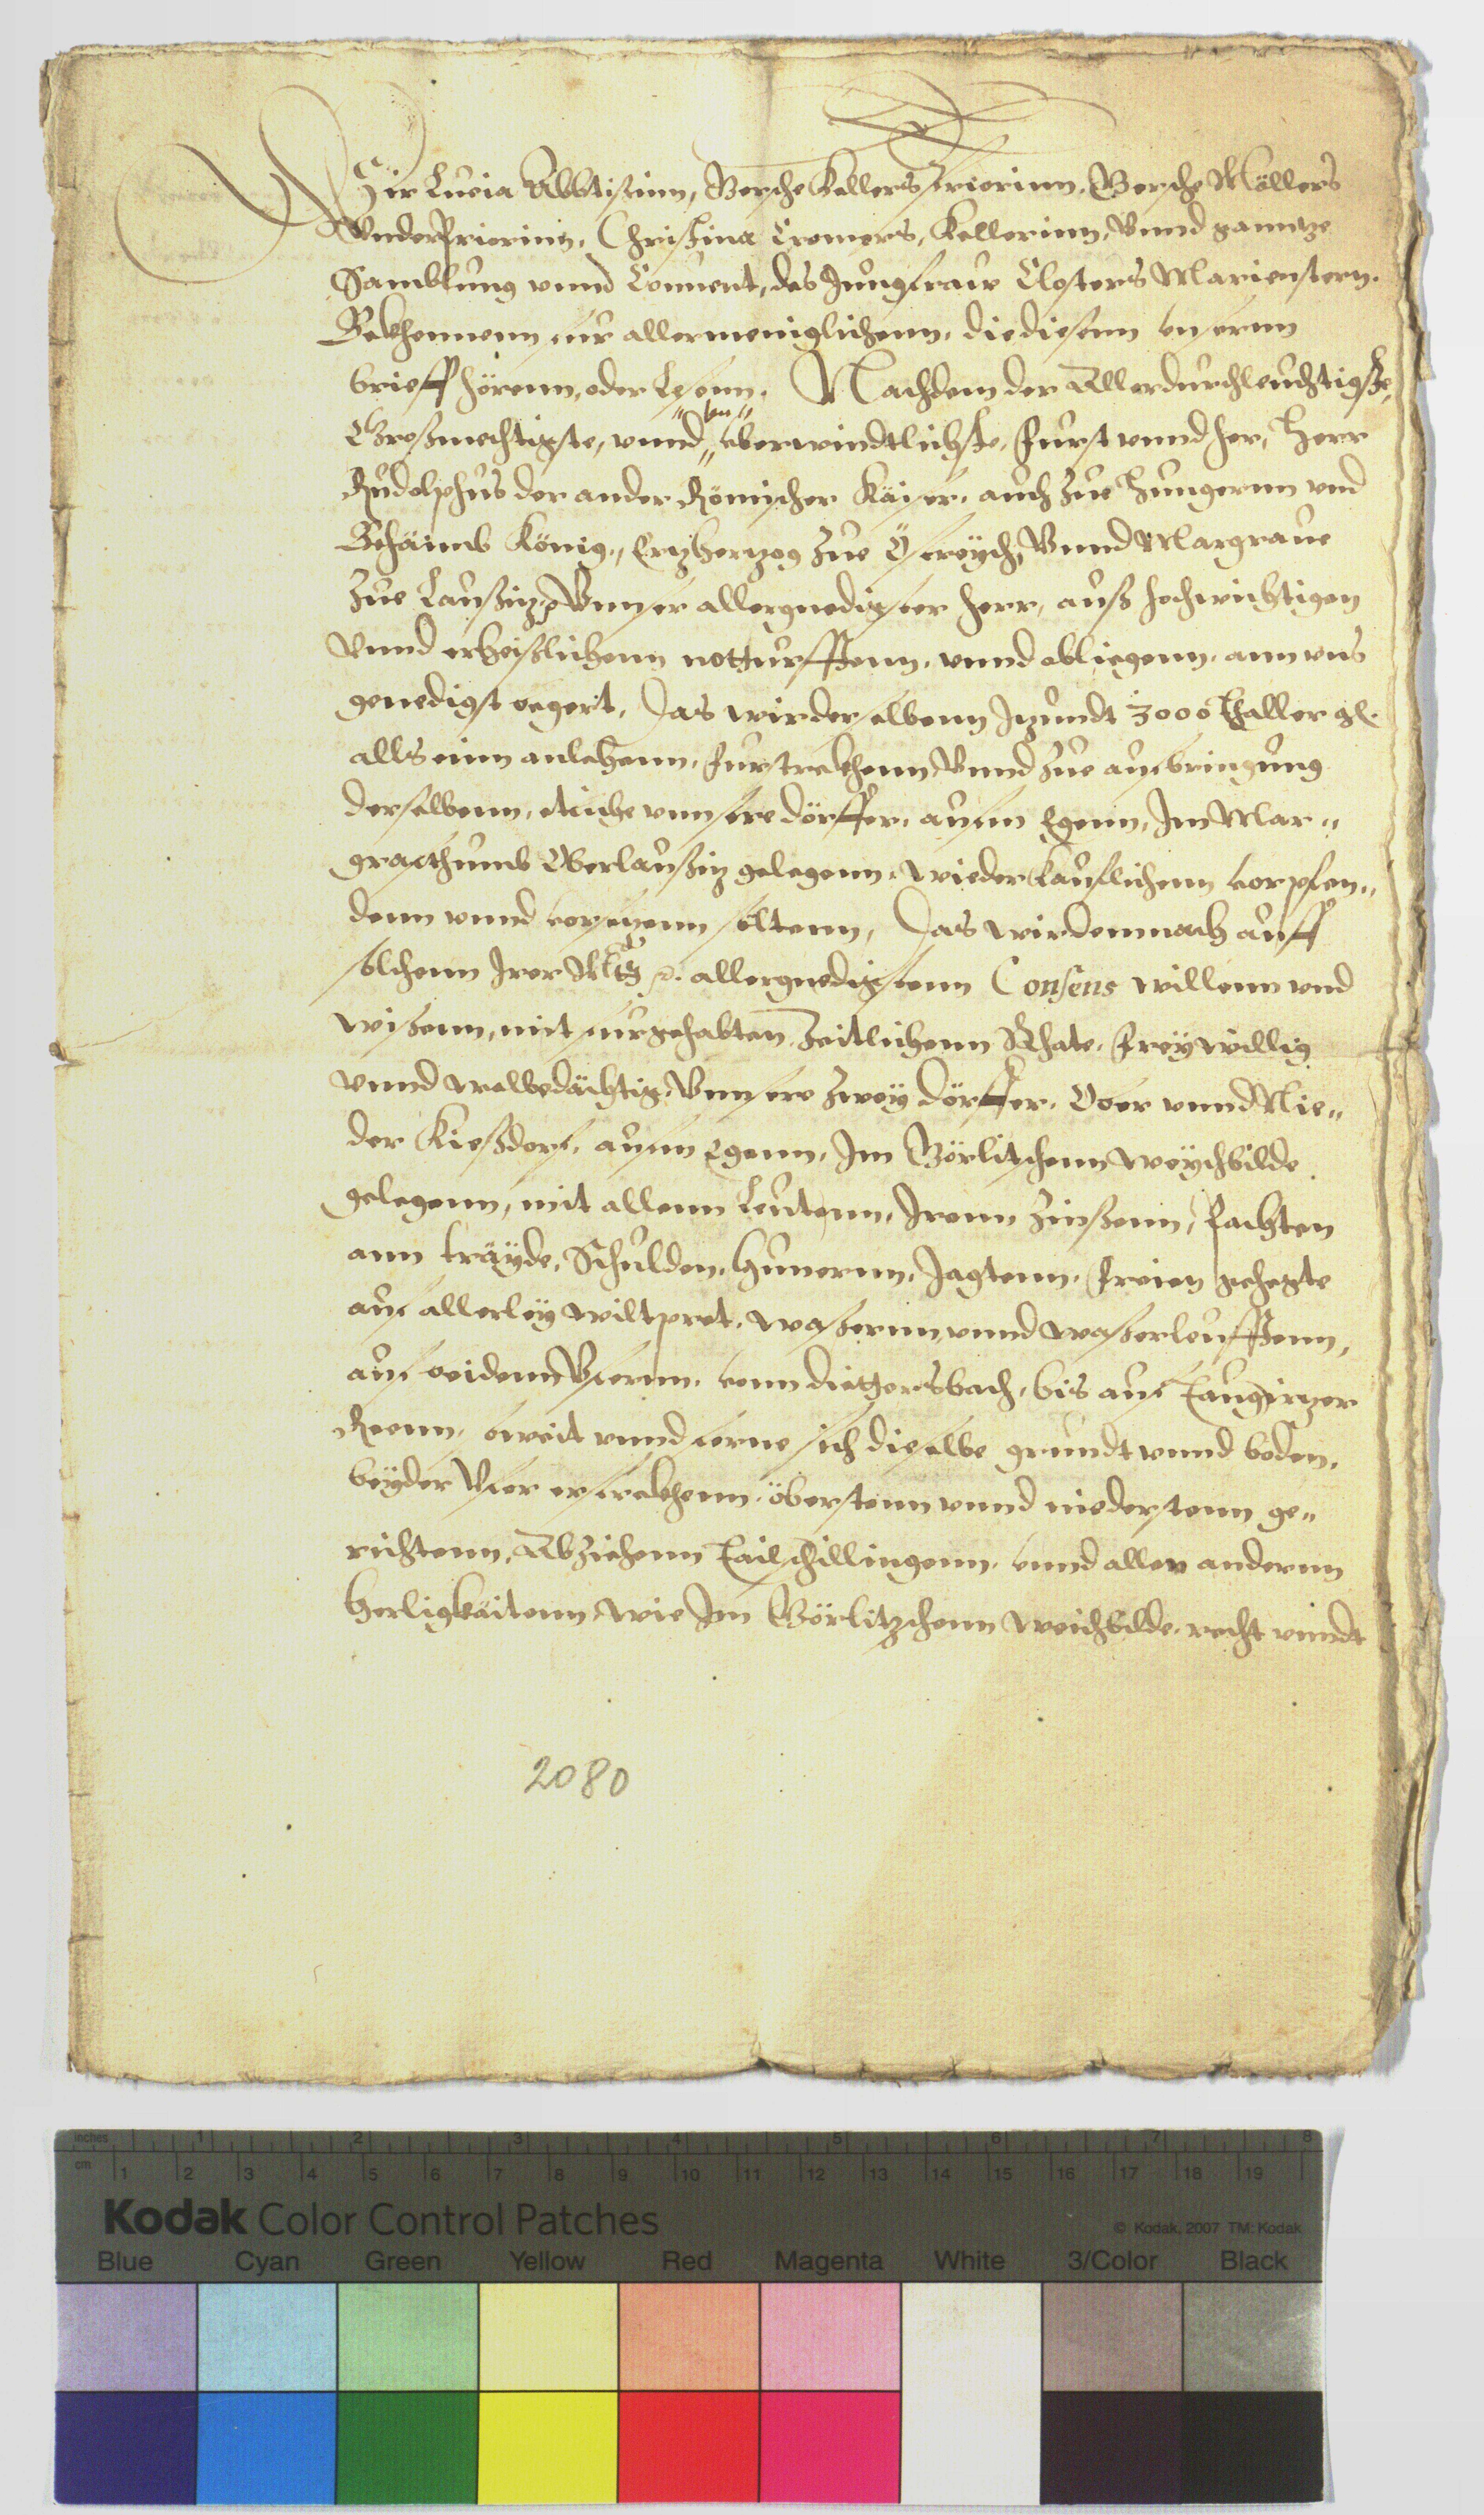 Wir Lucia Abbtißinn, Versche Kellers Priorinn, Versche Möllers
Vnder Priorinn, Christina Cromers, Kellerinn, Vnnd ganntze
Samblung vnnd Conuent, des Jungfraw Closters Marienstern.
Bekhennenn fur allermeniglichenn, die diesenn vnsernn
brieff hörenn, oder Lesenn, Nachdem der Allerdurchleuchtigste,
Großmechtigste, vnnd vnüberwindtlichste, furst vnnd her, Herr
Rudolphus der ander Römischer Käiser, auch zue Hungernn vnd
Behäimb König, Ertzhertzog zue Östereÿch, Vnnd Margraue
zue Laußitz, Vnnser allergnedigster herr, auß hochwichtigen
Vnnd erheißlichenn notturfftenn, vnnd obliegenn, ann vns
genedigst begert, Das wir derselbenn Jtzundt 3000 Thaller gl.
alls einn anlehenn, furstrekhenn, Vnnd zue aufbringung
derselbenn, etliche vnnsere dörffer, aufm Egenn, Jm Mar¬
graffthumb Oberlaußitz gelegenn, wieder Kauflichenn vorpfen¬
denn vnnd vorsetzenn soltenn, Das wir demnach auff
solchenn Jrer Mtt: allergnedigstenn Consens willenn vnd
wißenn, mit furgehabten Zeitlichenn Rhate, freÿwillig
vnnd wolbedächtig, Vnnsere zweÿ dörffer, Ober vnnd Nie¬
der Kießdorf, aufm Egenn, Jm Görlitschenn Weÿchbilde
gelegenn, mit allenn Leutenn, Jrenn Zinßenn, Pachten
ann träÿde, Schulden, Hunernn, Jagtenn, freien gehegte
auf allerleÿ wiltpret, waßernn, vnnd waßerleufftenn,
auf beidenn Vfernn, vonn dittersbach, bis auf Taugritzer
Reenn, soweit vnnd ferne sich dieselbe grundt vnnd boden,
beÿder Vfer erstrekhenn, öberstenn vnnd niederstenn ge¬
richtenn, Abziehenn Tailschillingenn, vnnd allen andernn
Herligkäitenn, wie Jm Görlitzschenn Weichbilde, recht vnndt
2080
inches 1 2 3 4 5 6 7 8
cm 1 2 3 4 5 6 7 8 9 10 11 12 13 14 15 16 17 18 19
Kodak Color Control Patches © Kodak, 2007 TM: Kodak
Blue Cyan Green Yellow Red Magenta White 3/Color Black